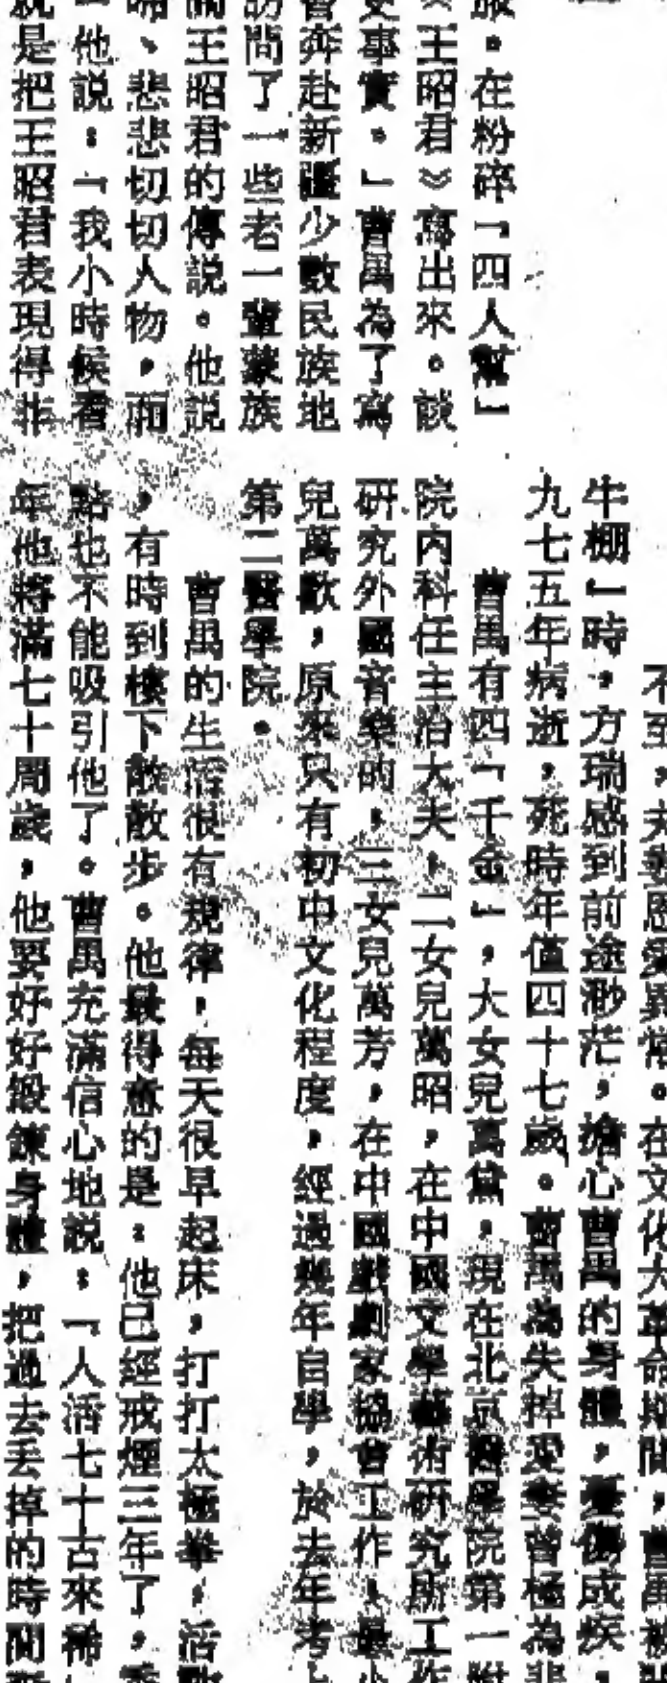 服。在粉碎「四人幫」
《王昭君》寫出來。談
史事實。」曹禺為了寫
曾奔赴新疆少數民族地
訪問了一些老一輩蒙族
關王昭君的傳說。他說
啼、悲悲切切人物，而
「他說：「我小時候看
就是把王昭君表現得非
不至，夫妻恩愛異常。在文化大革命期間，曹禺被
牛棚」時，方瑞感到前途渺茫，擔心曹禺的身體，憂傷成疾，
九七五年病逝，死時年值四十七歲。曹禺為失掉愛妻曾極為悲
曹禺有四「千金」，大女兒萬黛，現在北京醫學院第一附
院內科任主治大夫，二女兒萬昭，在中國文學藝術研究所工作
研究外國音樂的，三女兒萬芳，在中國戲劇家協會工作，最小
兒萬歡，原來只有初中文化程度，經過幾年自學，於去年考上
第二醫學院。
曹禺的生活很有規律，每天很早起床，打打太極拳，活動
，有時到樓下散散步。他最得意的是：他已經戒煙三年了，
點也不能吸引他了。曹禺充滿信心地說：「人活七十古來稀
年他將滿七十周歲，他要好好鍛鍊身體，把過去丟掉的時間